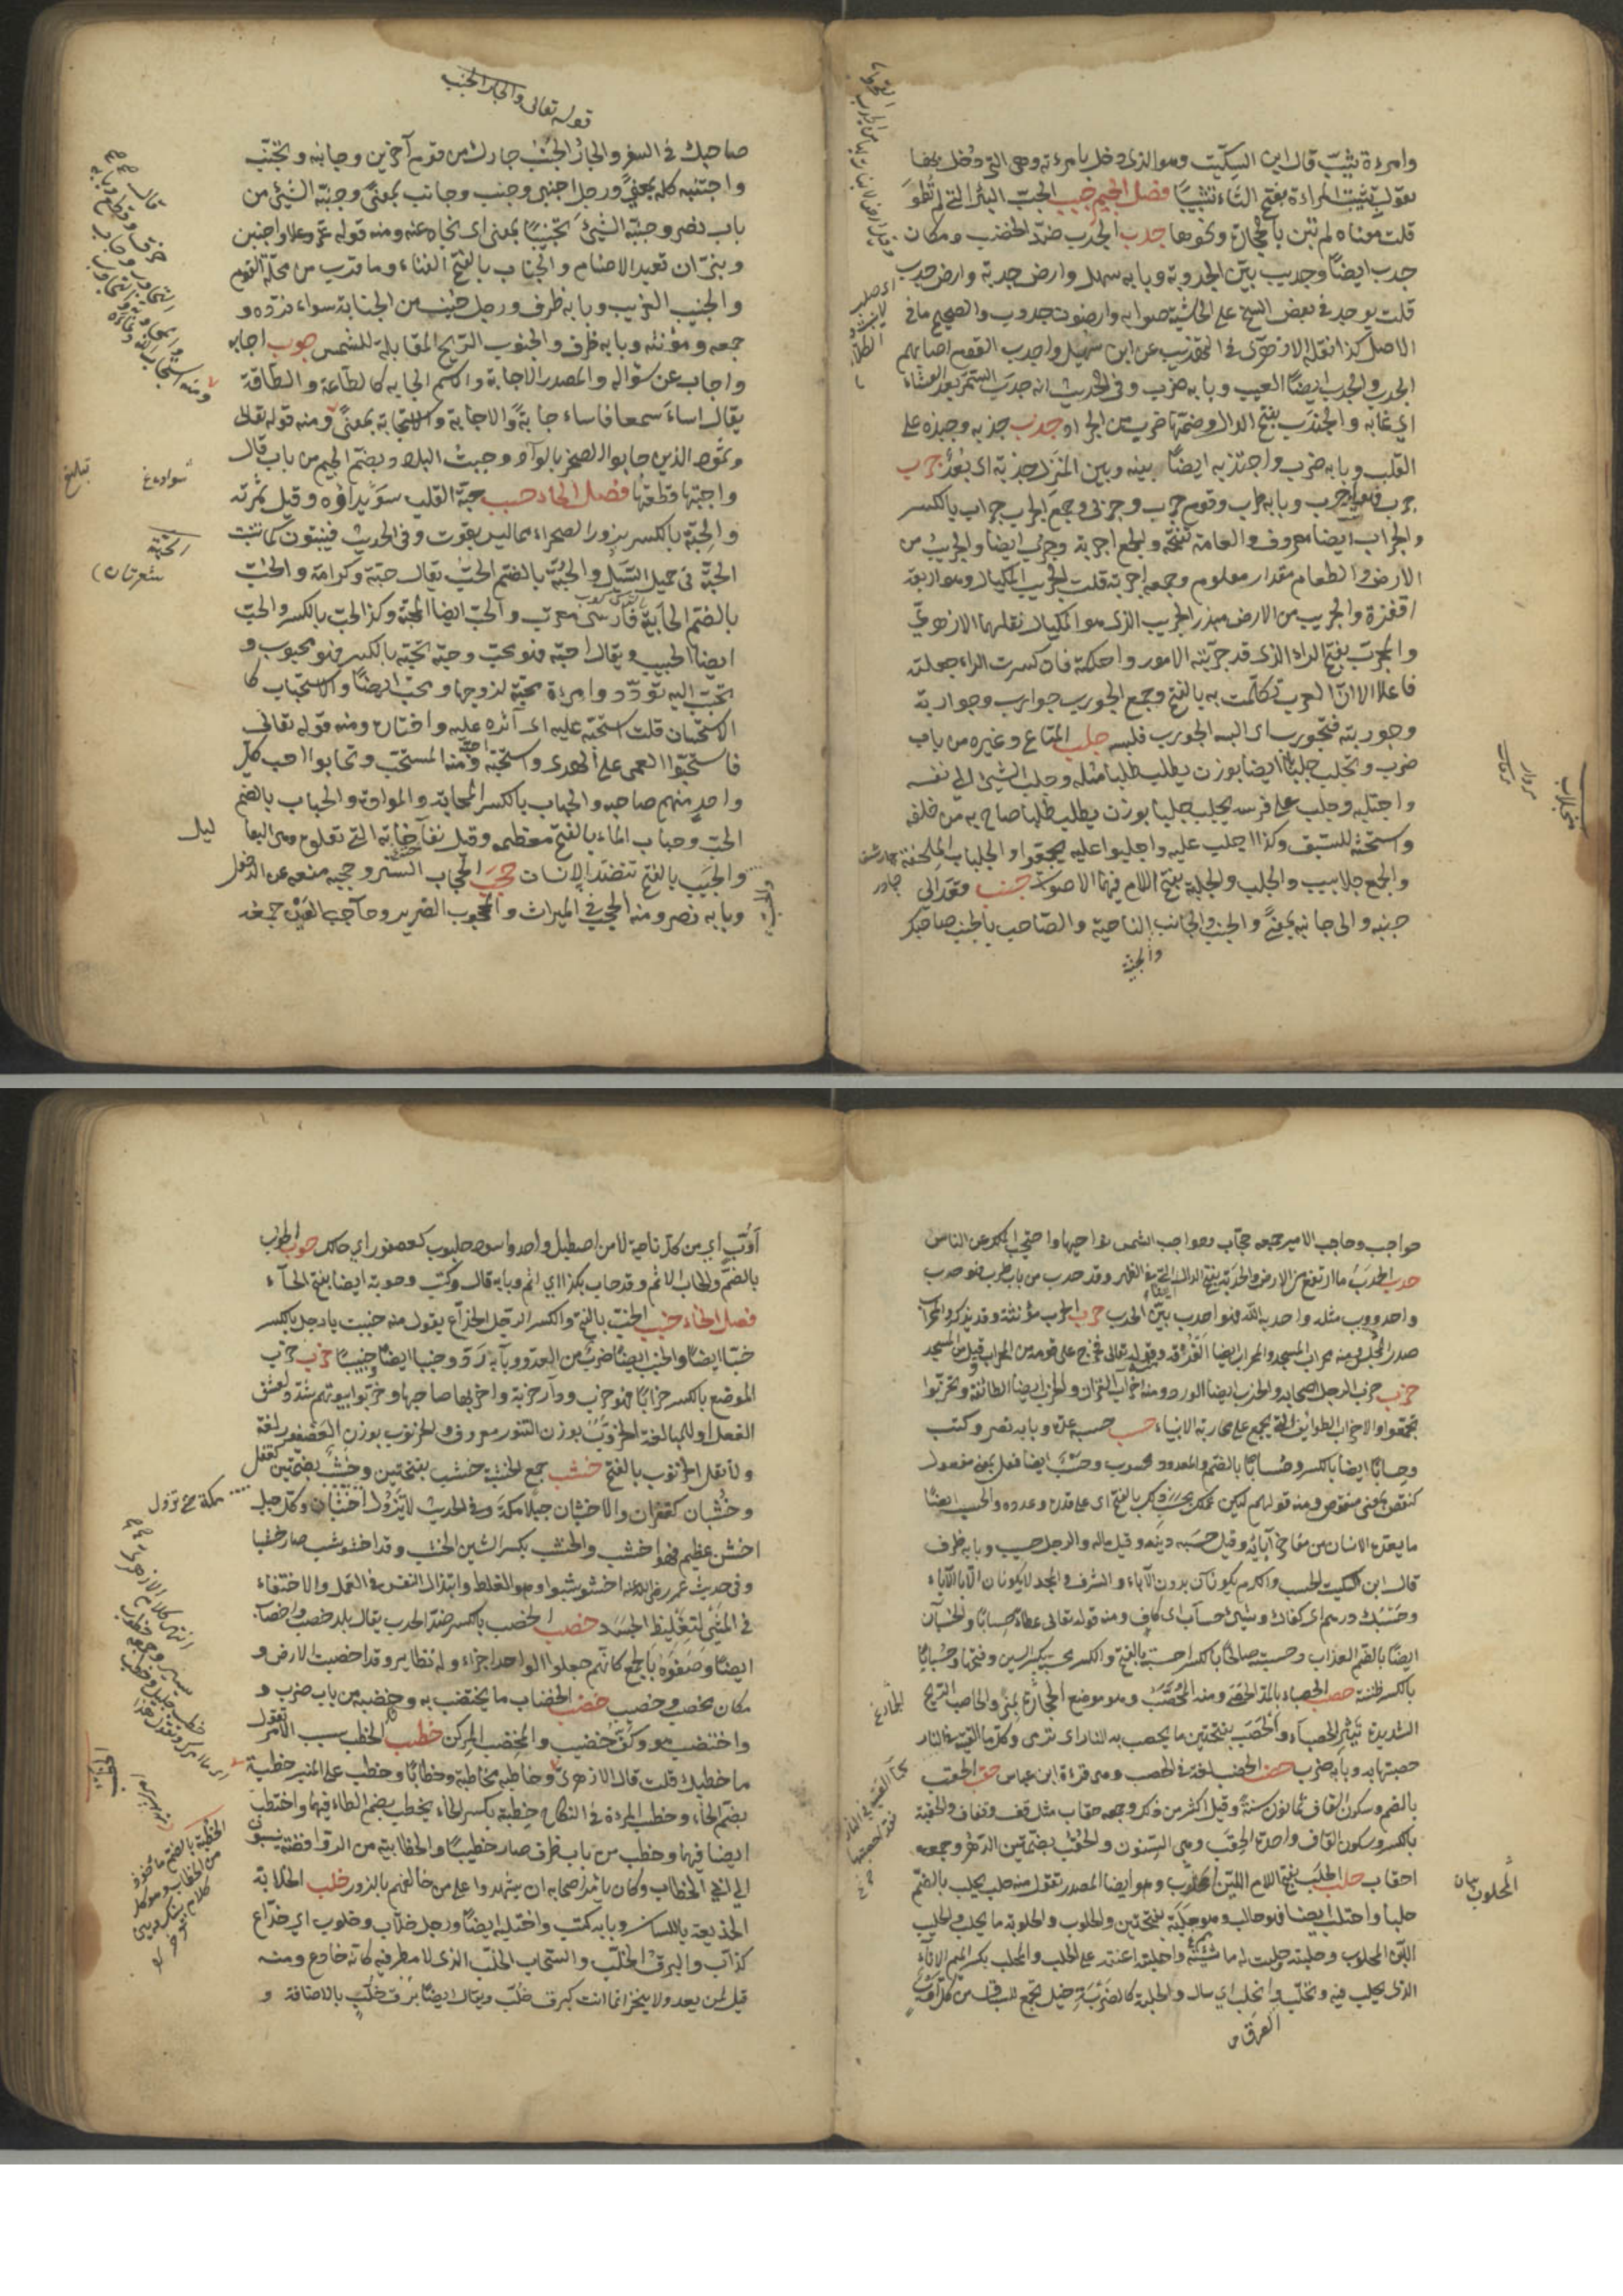 وامرءة ثيّب قال ابن السكّيت وهو الذى دخل بامرءته وهى التى دُخل بها
تقول ثيّبت المراءة بفتح الثاء تثييبًا فصل الجيم جبب الجبّ البئر التى لم تُطوَ
قلت معناه لم تبن بالحجارة ونحوها جدب الجدب ضدّ الخصب ومكان
جدب ايضًا وجديب بيّن الجدوبة وبابه سهل وارض جدبة وارض جدوب
قلت يوجد فى بعض النسخ على الحاشية صوابه وارضون جدوب والصحيح ما فى
الاصل كذا نقله الازهرى فى التهذيب عن ابن شميل واجدب القوم اصابهم
الجدب والجدب ايضًا العيب وبابه ضرب وفى الحديث انه جدب السمر بعد العشاء
اى عابه والجندب بفتح الدال وضمّها ضرب من الجراد جذب جذبه وجبذه على
القلب وبابه ضرب واجتذبه ايضًا بينه وبين المنزل جذبة اى بُعد جرب
جرب فهو اجرب وبابه طرب وقوم جرب وجربى وجمع الجرب جراب بالكسر
والجراب ايضا معروف والعامة تفتحه والجمع اجربة وجرب ايضا والجريب من
الارض والطعام مقدار معلوم وجمعه اجربة قلت الجريب المكيال وهو اربعة
اقفزة والجريب من الارض مبذر الجريب الذى هو المكيال نقلهما الازهرىّ
والمجرّب بفتح الراء الذى قد جرّبته الامور واحكمته فان كسرت الراء جعلته
فاعلا الا ان العرب تكلّمت به بالفتح وجمع الجورب جوارب وجواربة
وجوربته فتجورب اى البسه الجورب فلبسه جلب المتاع وغيره من باب
ضرب وتجلب جلبًا ايضا بوزن يطلب طلبا مثله وجلب الشيئ الى نفسه
واجتلبه وجلب على فرسه يجلب جلبا بوزن يطلب طلبا صاح به من خلفه
واستحثه للسبق وكذا اجلب عليه واجلبوا عليه تجمّعوا والجلباب الملحفة
والجمع جلابيب والجلب والجلبة بفتح اللام فيهما الاصوات جنب وقعد الى
جنبه والى جانبه بمعنًى والجنب والجانب والجنبة الناحية والصّاحب بالجنب صاحبك
قوله تعالى والجار الجنب
صاحبك فى السفر والجار الجنب جارك من قوم آخرين وجانبه وتجنّب
واجتنبه كله بمعنًى ورجل اجنبى وجنب وجانب بمعنًى وجنبه الشيئ من
باب نصر وجنّبه الشيئ تجنيبًا بمعنى اى نحّاه عنه ومنه قوله عزّ وعلا واجنبنى
وبنىّ ان نعبد الاصنام والجناب بالفتح الفناء وما قرب من محلّة القوم
والجنيب الغريب وبابه ظرف ورجل جنب من الجنابة سواء فرده و
جمعه ومؤنثه وبابه ظرف والجنوب الريح المقابلة للشمس جوب اجابه
واجاب عن سؤاله والمصدر الاجابة والاسم الجابه كالطّاعة والطّاقة
يقال اساء سمعا فاساء جابةً والاجابة والاستجابة بمعنًى ومنه قوله تعالى
وثمود الذين جابوا الصخر بالواد وجبت البلاد وبضمّ الجيم من باب قال
واجبتها قطعتها فصل الحاء حبب حبّة القلب سويداؤه وقيل ثمرته
والحبّة بالكسر بزور الصحراء مما ليس بقوت وفى الحديث فينبتون كما تنبت
الحبّة فى حميل السّيل والحبّة بالضم الحبّ يقال حبّة وكرامة والحبّ
بالضم الخابية فارسى معرّب والحبّ ايضا المحبّة وكذا الحبّ بالكسر والحبّ
ايضا الحبيب ويقال احبّه فهو محبّ وحبّه يحبّه بالكسر فهو محبوب و
تحبّب اليه تودّد وامرءة محبّة لزوجها ومحبّ ايضًا والاستحباب كا
لاستحسان قلت استحبّه عليه اى آثره عليه واختاره ومنه قوله تعالى
فاستحبّوا العمى على الهدى واستحبّه احبّه ومنه المستحب وتحابوا احب كلّ
واحد منهم صاحبه والحباب بالكسر المحابة والموادة والحباب بالضم
الحبّ وحباب الماء بالفتح معظمه وقيل نفّاخاته التى تعلوه وهى اليعا
ليل
والحبب بالفتح تنضّد الاسنان حجب الحجاب الستر وحجبه منعه عن الدخول
وبابه نصر ومنه الحجب فى الميراث والمحجوب الضرير وحاجب العين جمعه
حواجب وحاجب الامير جمعه حجّاب وحواجب الشمس نواحيها واحتجب الملك عن الناس
حدب الحدب ما ارتفع من الارض والحدبة بفتح الدال التى فى الظهر وقد حدب من باب طرب فهو حدب
واحدودب مثله واحدبه اللّه فهو احدب بيّن الحدب حرب الحرب مؤنثة وقد يذكر والمحراب
صدر المجلس ومنه محراب المسجد والمحراب ايضا الغرفة وقوله تعالى فخرج على قومه من المحراب قيل من المسجد
حزب حزب الرجل اصحابه والحزب ايضا الورد ومنه احزاب القرآن والحزب ايضا الطائفة وتحزّبوا
تجمّعوا والاحزاب الطوائف التى تجمع على محاربة الانبياء حسب حسبه عدّه وبابه نصر وكتب
وحسابًا ايضا بالكسر وحُسبانًا بالضم والمعدود محسوب وحسَب ايضا فعل بمعنى مفعول
كنفض بمعنى منفوض ومنه قولهم ليكن عملك بحسب ذلك بالفتح اى على قدره وعدده والحسب ايضًا
ما يعدّه الانسان من مفاخر آبائه وقيل حسبه دينه وقيل ماله والرجل حسيب وبابه ظرف
قال ابن السكيت الحسب والكرم يكونان بدون الآباء والشرف والمجد لا يكونان الّا بالآباء
وحسبك درهم اى كفاك وشيئ حساب اى كاف ومنه قوله تعالى عطاء حسابا والحسبان
ايضًا بالضم العذاب وحسبته صالحًا بالكسر احسبه بالفتح والكسر محسبة بكسر السين وفتحها وحسبانًا
بالكسر ظننته حصب الحصباء بالمد الحصى ومنه المحصّب وهو موضع الجمار بمنى والحاصب الريح
الشديدة تثير الحصباء والحصب بفتحتين ما يحصب به النار اى ترمى وكل ما القيته فى النار
حصبتها به وبابه ضرب حضب الحضب لغة فى الحصب وهى قراءة ابن عباس حقب الحقب
بالضم وسكون القاف ثمانون سنة وقيل اكثر من ذلك وجمعه حقاب مثل قف وقفاف والحقبة
بالكسر وسكون القاف واحدة الحقب وهى السّنون والحقب بضمّتين الدّهر وجمعه
احقاب حلب الحلب بفتح اللام اللبن المحلوب وهو ايضا المصدر تقول منه حلب يحلب بالضّم
حلبا واحتلب ايضا فهو حالب وهم حلبة بفتحتين والحلوب والحلوبة ما يحلب والحليب
اللبن المحلوب وحلبته وحلبت له ماشيته واحلبته اعنته على الحلب والمحلب بكسر الميم الاناء
الذى يحلب فيه وتحلّب العرق وانحلب اى سال والحلبة كالضربة خيل تجمع للسباق من كلّ
أوب اى من كلّ ناحية لا من اصطبل واحد واسود حلبوب كعصفور اى حالك حوب الحوب
بالضمّ والحاب الاثم وقد حاب بكذا اى اثم وبابه قال وكتب وحوبة ايضا بفتح الحاء
فصل الخاء خبب الخبّ بالفتح والكسر الرجل الخدّاع يقول منه خببت يا رجل بالكسر
خبّا ايضًا والخبب ايضًا ضرب من العدو وبابه ردّ وخببا ايضا وخبيبًا خرب خرب
الموضع بالكسر خرابًا فهو خرب ودار خربة واخربها صاحبها وخرّبوا بيوتهم شدّد لفشوّ
الفعل او للمبالغة والخرّوب بوزن التنور معروف والخرنوب بوزن العصفور لغة
ولا تقل الخرنوب بالفتح خشب جمع الخشبة خشب بفتحتين وخشب بضمتين كقفل
وخشبان كغفران والاخشبان جبلا مكة وفى الحديث لا تزول اخشبان وكل جبل
اخشن عظيم فهو اخشب والخشب بكسر الشين الخشن وقد اخشوشب صار خشبا
وفى حديث عمر رضى الله عنه اخشوشبوا وهو الغلظ وابتذال النفس فى العمل والاحتفاء
فى المشى لتغليظ الجسد خصب الخصب بالكسر ضدّ الجدب يقال بلد خصب واخصاب
ايضًا وصفوه بالجمع كانّهم جعلوا الواحد اجزاء وله نظاير وقد اخصبت الارض و
مكان مخصب وخصيب خضب الخضاب ما يختضب به وخضبه من باب ضرب و
واختضب هو وكفّ خضيب والمخضب المركن خطب الخطب سبب الامر تقول
ما خطبك قلت قال الازهرى وخاطبه مخاطبة وخطابًا وخطب على المنبر خطبة
بضمّ الخاء وخطب المرءة فى النكاح خطبة بكسر الخاء يخطب بضم الطاء فيهما واختطب
ايضا فيهما وخطب من باب ظرف صار خطيبًا والخطابية من الروافض ينسبون
الى ابى الخطاب وكان يامر اصحابه ان يشهدوا على من خالفهم بالزور خلب الخلابة
الخديعة باللسان وبابه كتب واختلبه ايضًا ورجل خلّاب وخلوب اى خدّاع
كذّاب والبرق الخلّب والسحاب الخلّب الذى لا مطر فيه كانه خادع ومنه
قيل لمن يعد ولا ينجز انما انت كبرق خلّب ويقال ايضًا برق خلّب بالاضافة و